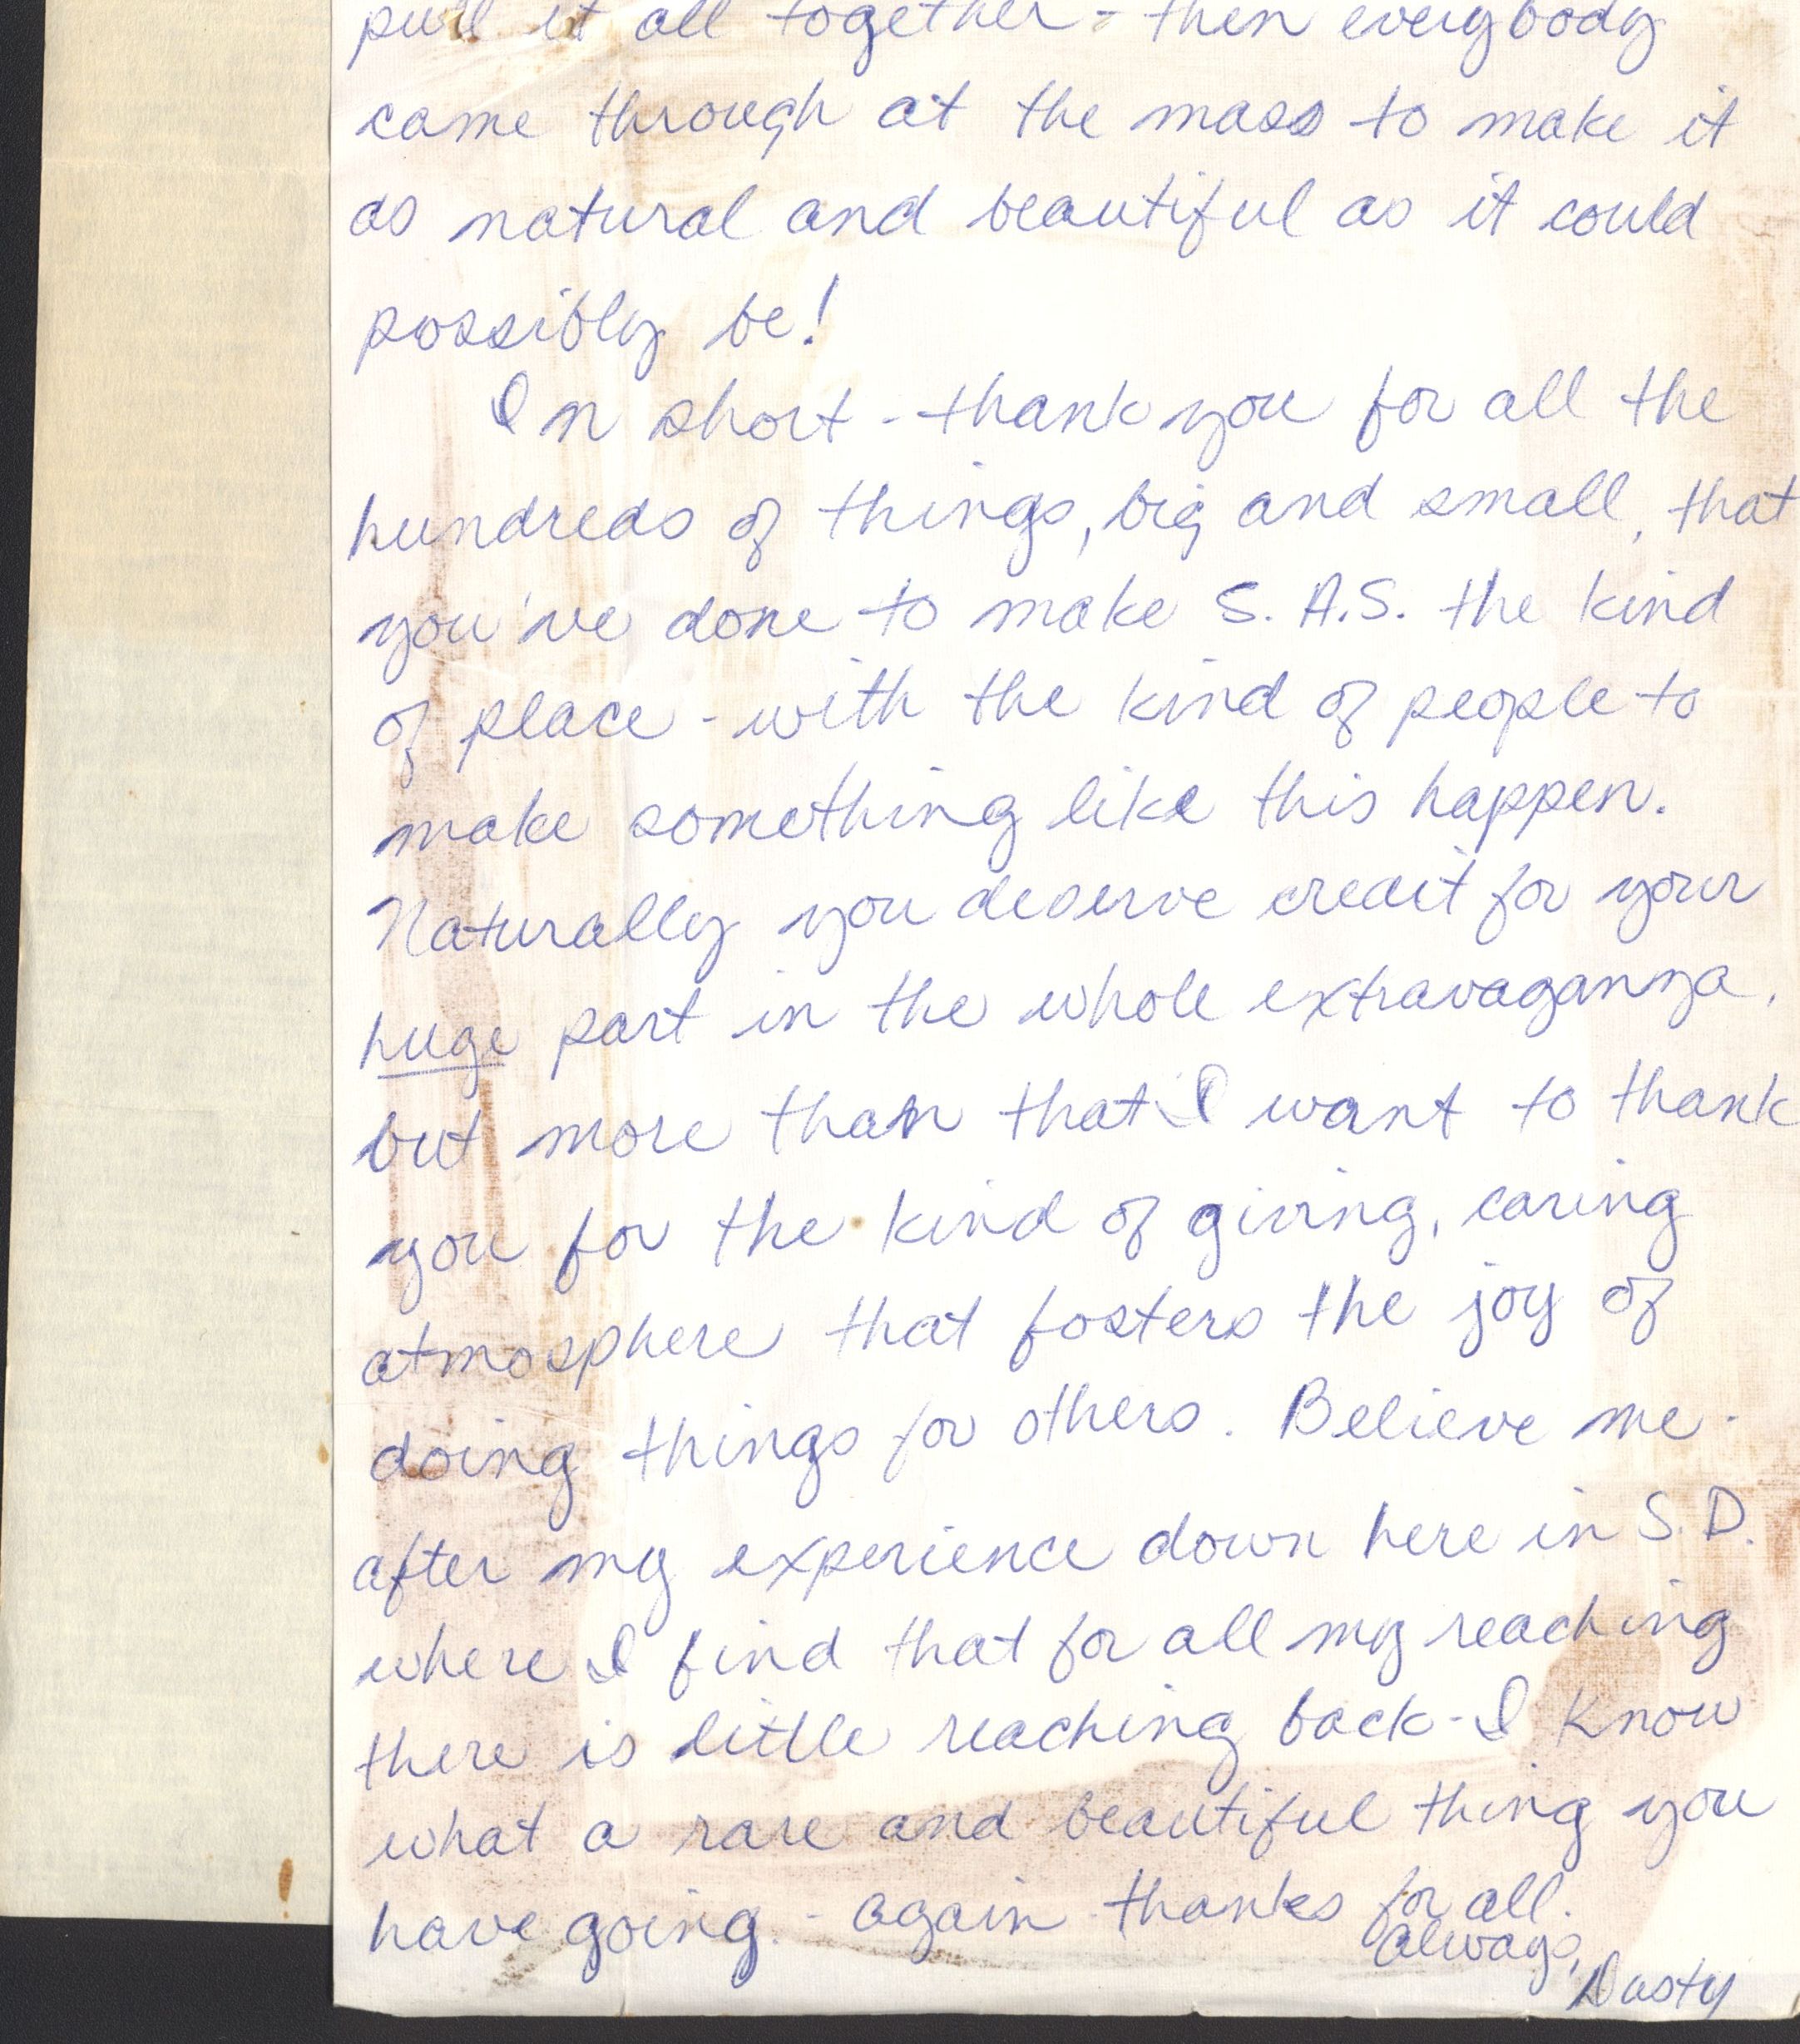 pull it all together - then everybody
came through at the mass to make it
as natural and beautiful as it could
possibly be!
In short - thank you for all the
hundreds of things, big and small, that
you've done to make S. A.S. the kind
of place - with the kind of people to
make something like this happen.
Naturally you deserve credit for your
huge part in the whole extravaganza,
but more than that I want to thank
you for the kind of giving, caring
atmosphere that fosters the joy of
doing things for others. Believe me -
after my experience down here in S.D.
where I find that for all my reaching
there is little reaching back - I know
what a rare and beautiful thing you
have going - again - thanks for all.
Always,
Dusty